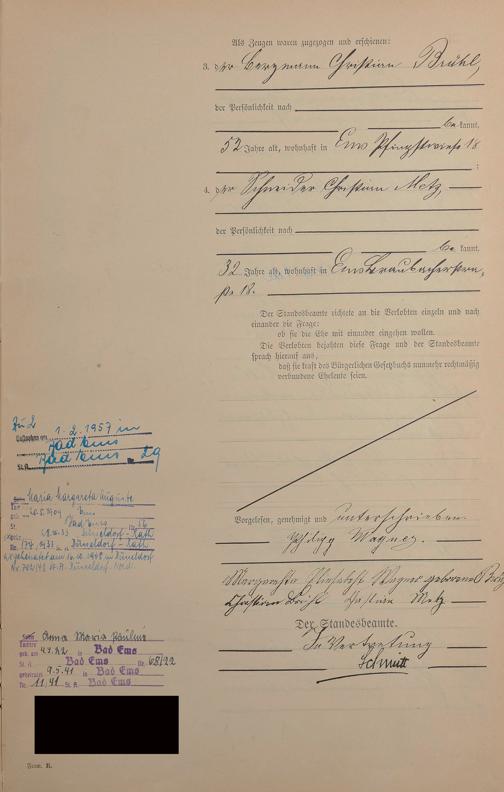 Als Zeugen waren zugezogen und erschienen:
3. der Bergmann Christian Brühl,
der Persönlichkeit nach
be kannt,
52 Jahre alt, wohnhaft in Ems Pfingstwiese 18
;
4. der Schneider Christian Metz,
der Persönlichkeit nach
be kannt,
32 Jahre alt, wohnhaft in Ems Braubacherstra,
ße 18.
Der Standesbeamte richtete an die Verlobten einzeln und nach
einander die Frage:
ob sie die Ehe mit einander eingehen wollen.
Die Verlobten bejahten diese Frage und der Standesbeamte
sprach hierauf aus,
daß sie kraft des Bürgerlichen Gesetzbuchs nunmehr rechtmäßig
verbundene Eheleute seien.
Vorgelesen, genehmigt und unterschrieben
Wagner.
Margaretha Elisabeth Wagner geborene
Christian Brühl Christian Metz
Der Standesbeamte.
In Vertretung
Schmitt
Zu 2
1.2.1957 in
Bad Ems
St.A. Bad Ems Nr. 29
Maria Margareta Auguste
20.8.1909 Ems
St. Bad Ems 16
Düsseldorf-Rath
Nr. 174, 1933 Düsseldorf-Rath
Düsseldorf
Nr. 742/48 St. A. Düsseldorf Nord.
Anna Maria Pauline
geb. am 4.3.22 in Bad Ems
St. A. Bad Ems Nr. 68/22
geheiratet 9.5.41 in Bad Ems
Nr. 11, 41 St. A. Bad Ems
Form. B.